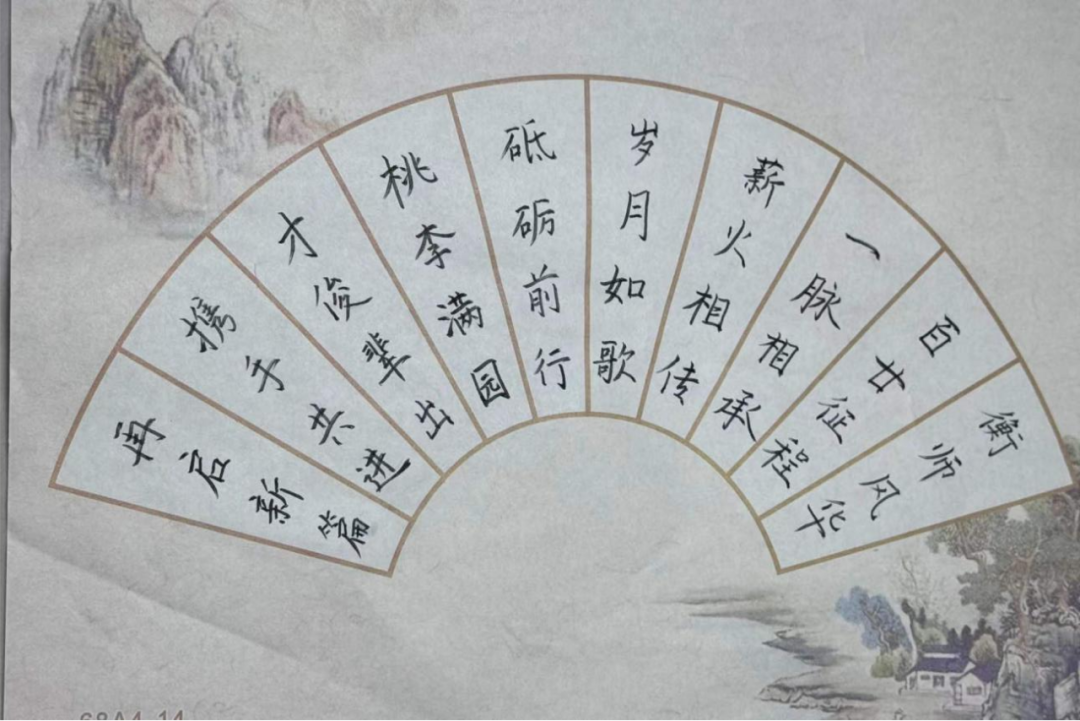 衡师风华
百廿征程
一脉相承
薪火相传
岁月如歌
砥砺前行
桃李满园
才俊辈出
携手共进
再启新篇